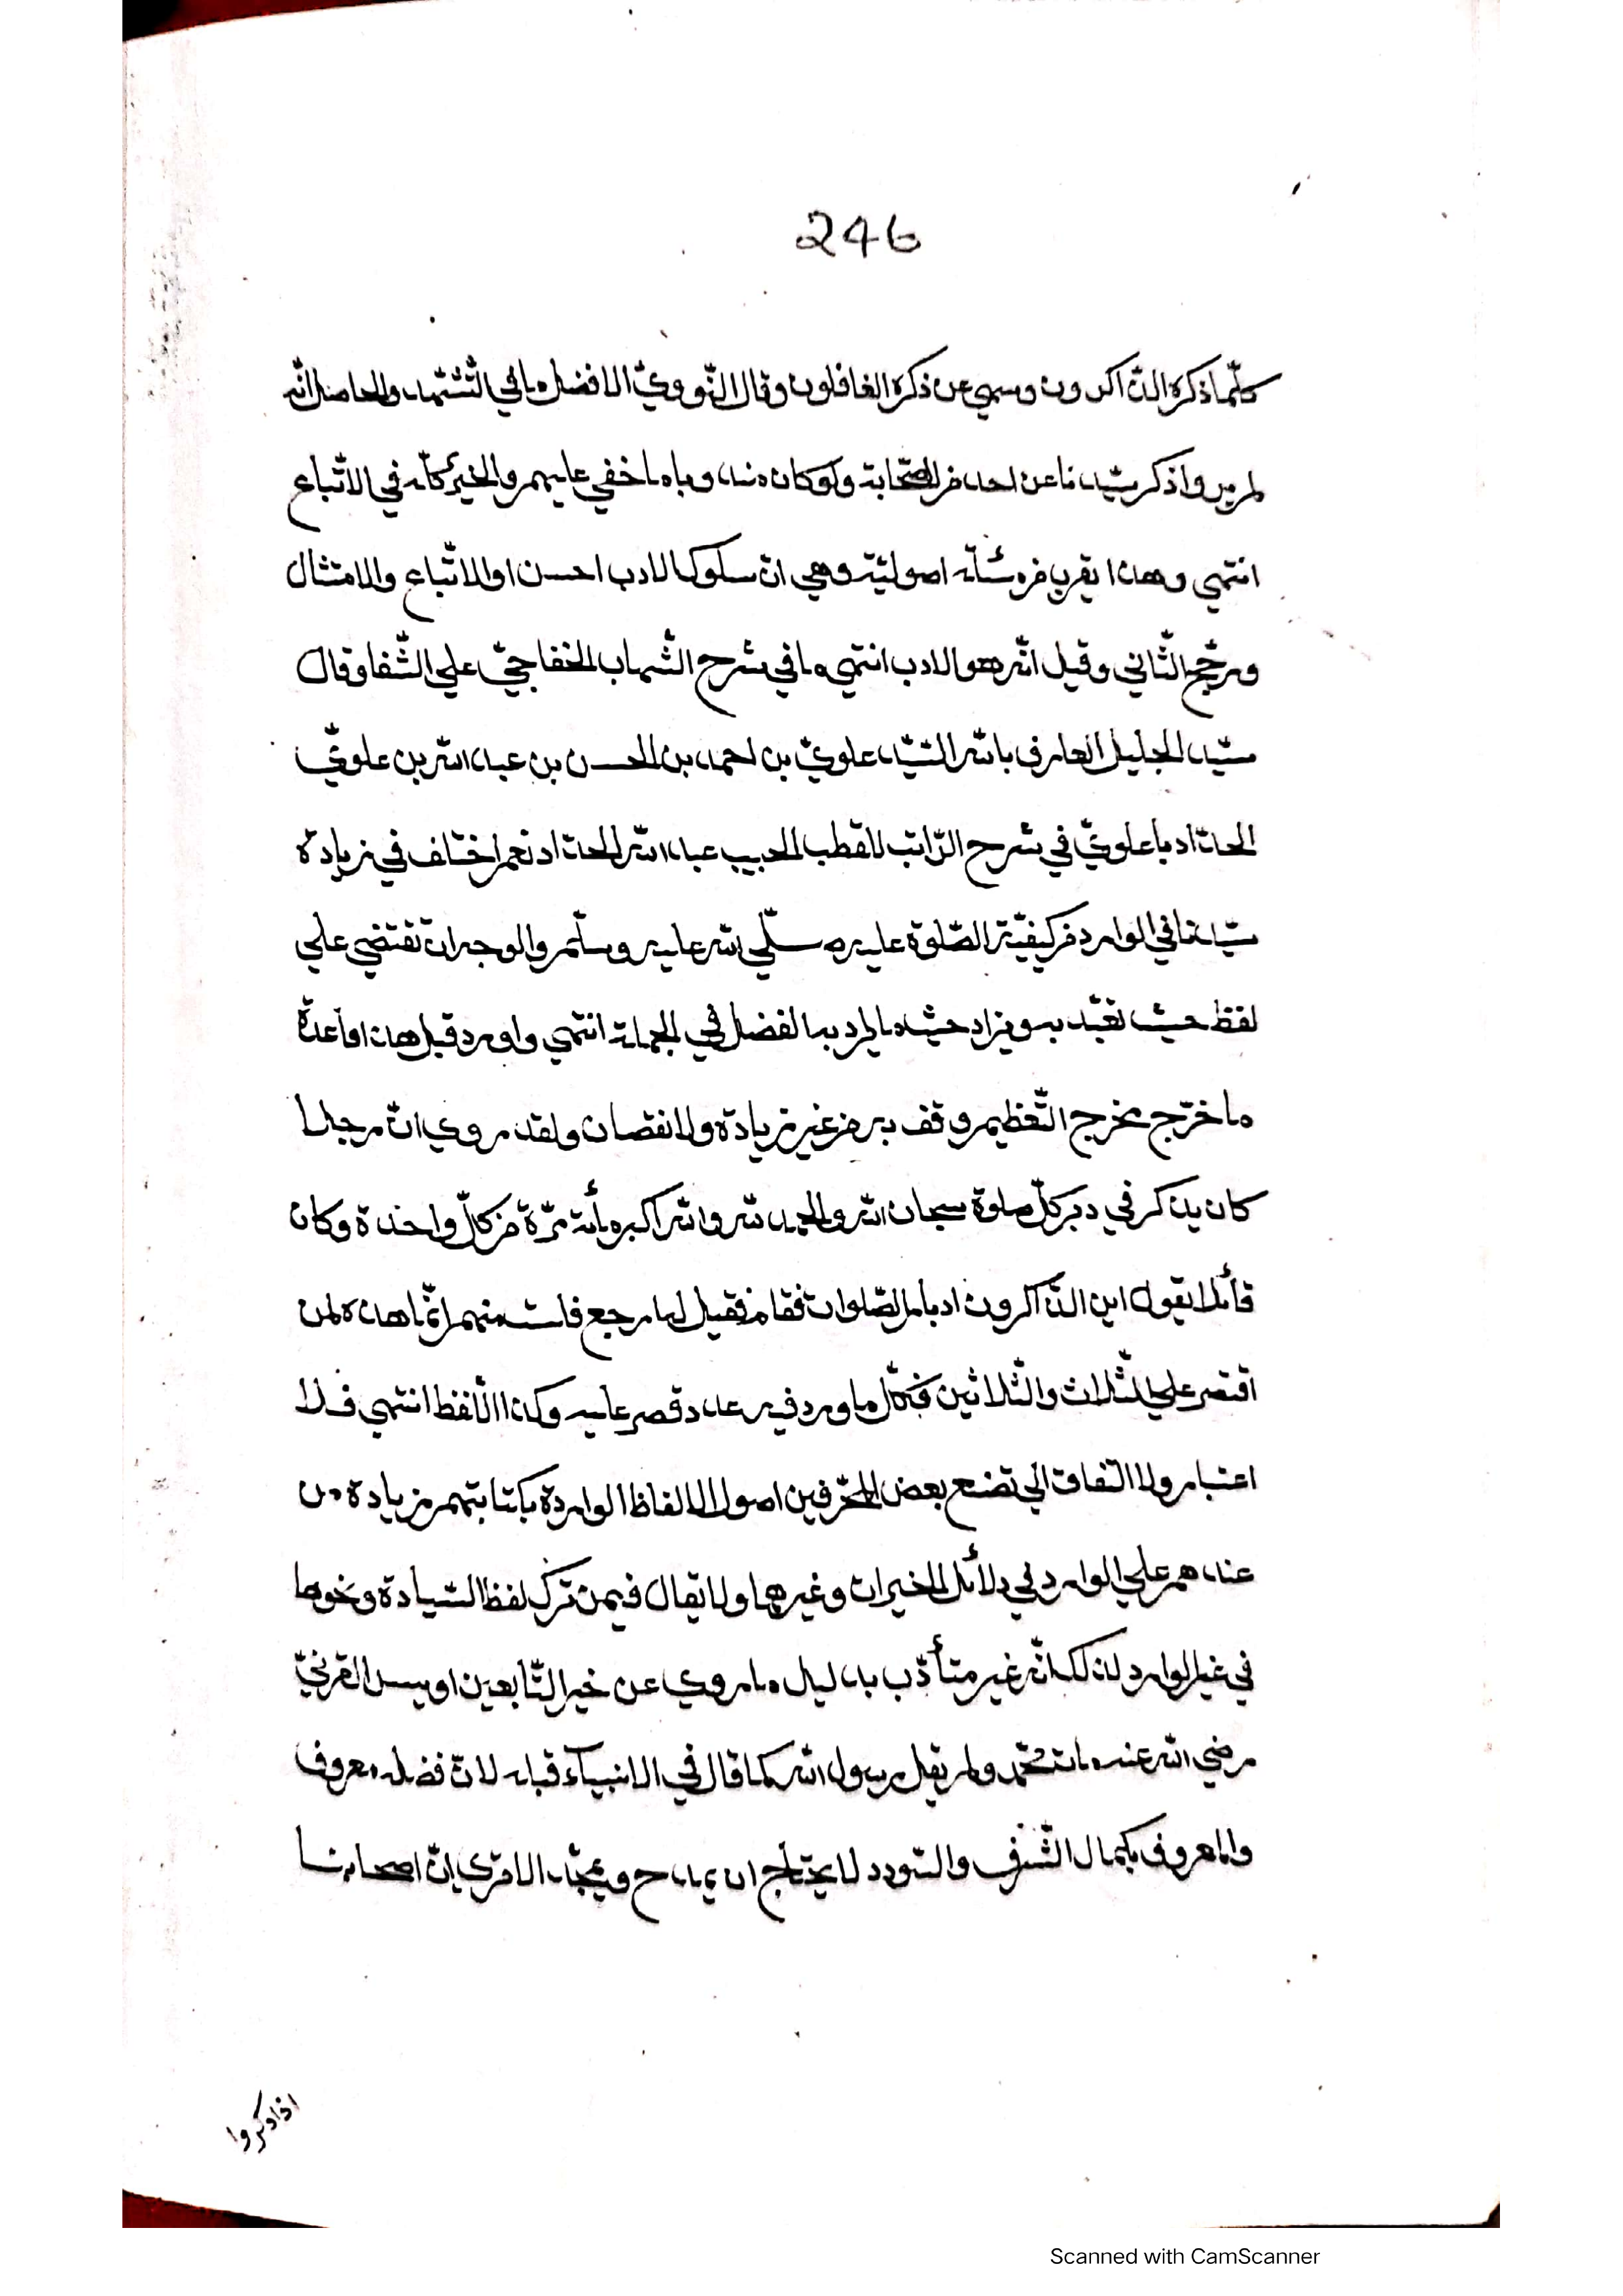 246
كلّما ذكره الذّاكرون وسهي عن ذكره الغافلون وقال النّوويّ الافضل ما في التّشهّد والحاصل انّه
لم يرو اذكر سيّدنا عن احد من الصّحابة ولو كان مندوبا ما خفي عليهم والخير كلّه في الاتّباع
انتهي وهذا يقرب من مسئلة اصوليّة وهي انّ سلوك الادب احسن او الاتّباع والامتثال
ورجّح الثّاني وقيل انّه هو الادب انتهي ما في شرح الشّهاب الخفاجيّ علي الشّفا وقال
سيّد الجليل العارف بالله السّيّد علويّ بن احمد بن الحسن بن عبد الله بن علويّ
الحدّاد با علويّ في شرح الرّاتب للقطب الحبيب عبد الله الحدّاد نعم اختلف في زيادة
سيّدنا في الوارد من كيفيّة الصّلوة عليه صلّي الله عليه وسلّم والوجه ان تقتضي علي
لفظ حيث تعبّد به ويزاد حيث ما لم يرد به الفضل في الجملة انتهي واورد قبل هذا قاعدة
ما خرّج مخرج التّعظيم وقف به من غير زيادة ولا نقصان ولقد روي انّ رجلا
كان يذكر في دبر كلّ صلوة سبحان الله والحمد لله والله اكبر مأئة مرّة من كلّ واحدة وكان
قأئلا يقول اين الذّاكرون ادبار الصّلوات فقام فقيل له ارجع فلست منهم انّما هذه لمن
اقتصر علي الثّلاث والثّلاثين فكلّ ما ورد فيه عدد قصر عليه وكذا اللّفظ انتهي فلا
اعتبار ولا التفات الي تضنع بعض المحرّفين اصول الالفاظ الواردة بكتابتهم زيادة من
عندهم علي الوارد في دلأئل الخيرات وغيرها ولا يقال فيمن ترك لفظ السّيادة ونحوها
في غير الوارد لذلك انّه غير متأدّب بدليل ما روي عن خير التّابعين اويس القرنيّ
رضي الله عنه مات محمّد ولم يقل رسول الله كما قال في الانبيآء قبله لانّ فضله معروف
والمعروف بكمال الشّرف والتودد لا يحتاج ان يمدح ويمجّد الا تري انّ اصحابنا
اذا ذكروا
Scanned with CamScanner